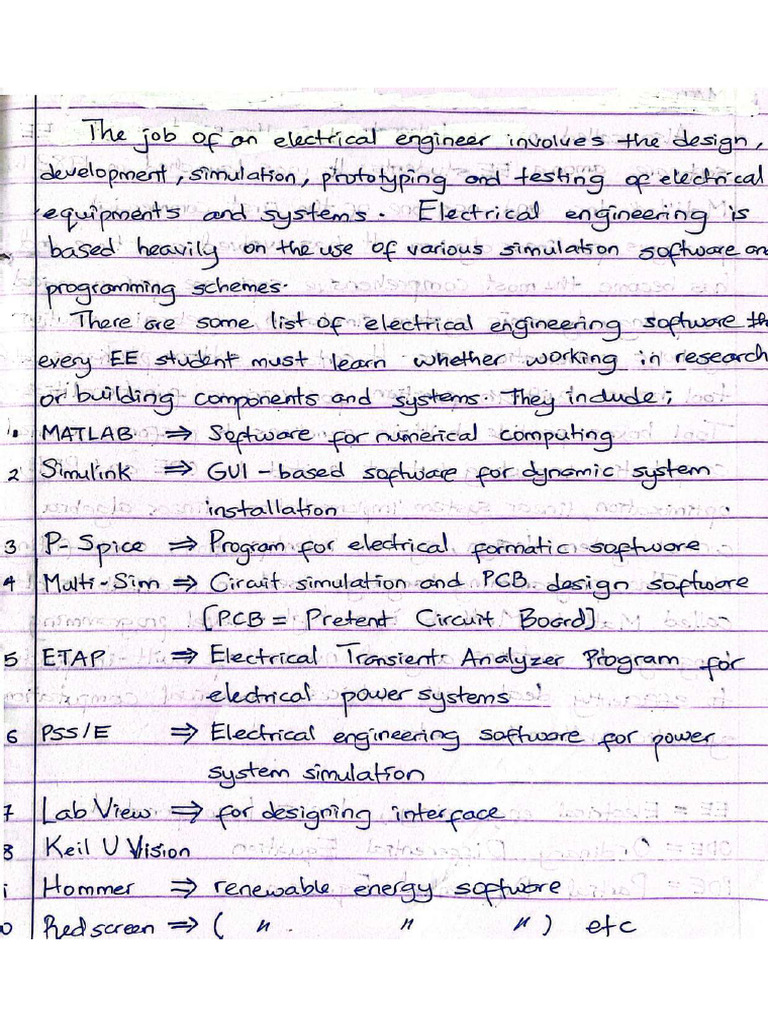 The job of an electrical engineer involves the design,
development, simulation, prototyping and testing of electrical
equipments and systems. Electrical engineering is
based heavily on the use of various simulation software an
programming schemes.
There are some list of electrical engineering software th
every EE student must learn whether working in research
or building components and systems. They include;
1. MATLAB ⇒ Software for numerical computing
2 Simulink ⇒ GUI-based software for dynamic system
installation
3 P-Spice ⇒ Program for electrical formatic software
4 Multi-Sim ⇒ Circuit simulation and PCB design software
[PCB = Pretend Circuit Board]
5 ETAP ⇒ Electrical Transient Analyzer Program for
electrical power systems
6 PSS/E ⇒ Electrical engineering software for power
system simulation
7 Lab View ⇒ for designing interface
8 Keil U Vision
Hommer ⇒ renewable energy software
0 Redscreen ⇒ ( " " " ) etc